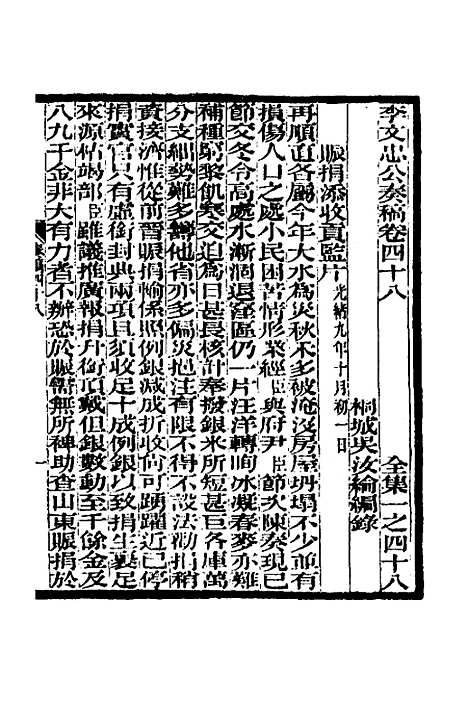 李文忠公奏稿卷四十八　全集一之四十八
桐城吳汝綸編錄
賑捐添收貢監片　光緒九年十月初一日
再順直各屬今年大水為災秋禾多被淹沒房屋坍塌不少並有
損傷人口之處小民困苦情形業經臣與府尹臣節次陳奏現已
節交冬令高處水漸涸退窪區仍一片汪洋轉瞬冰凝春麥亦難
補種窮黎飢寒交迫為日甚長核計奉撥銀米所短甚巨各庫萬
分支絀勢難多籌他省亦多偏災挹注有限不得不設法勸捐稍
資接濟惟從前晉賑捐輸係照例銀減成折收尚可踴躍近已停
捐實官只有虛銜封典兩項且須收足十成例銀以致捐生裹足
來源枯竭部臣雖議推廣報捐升銜頂戴但銀數動至千餘金及
八九千金非大有力者不辦恐於賑需無所裨助查山東賑捐於
一